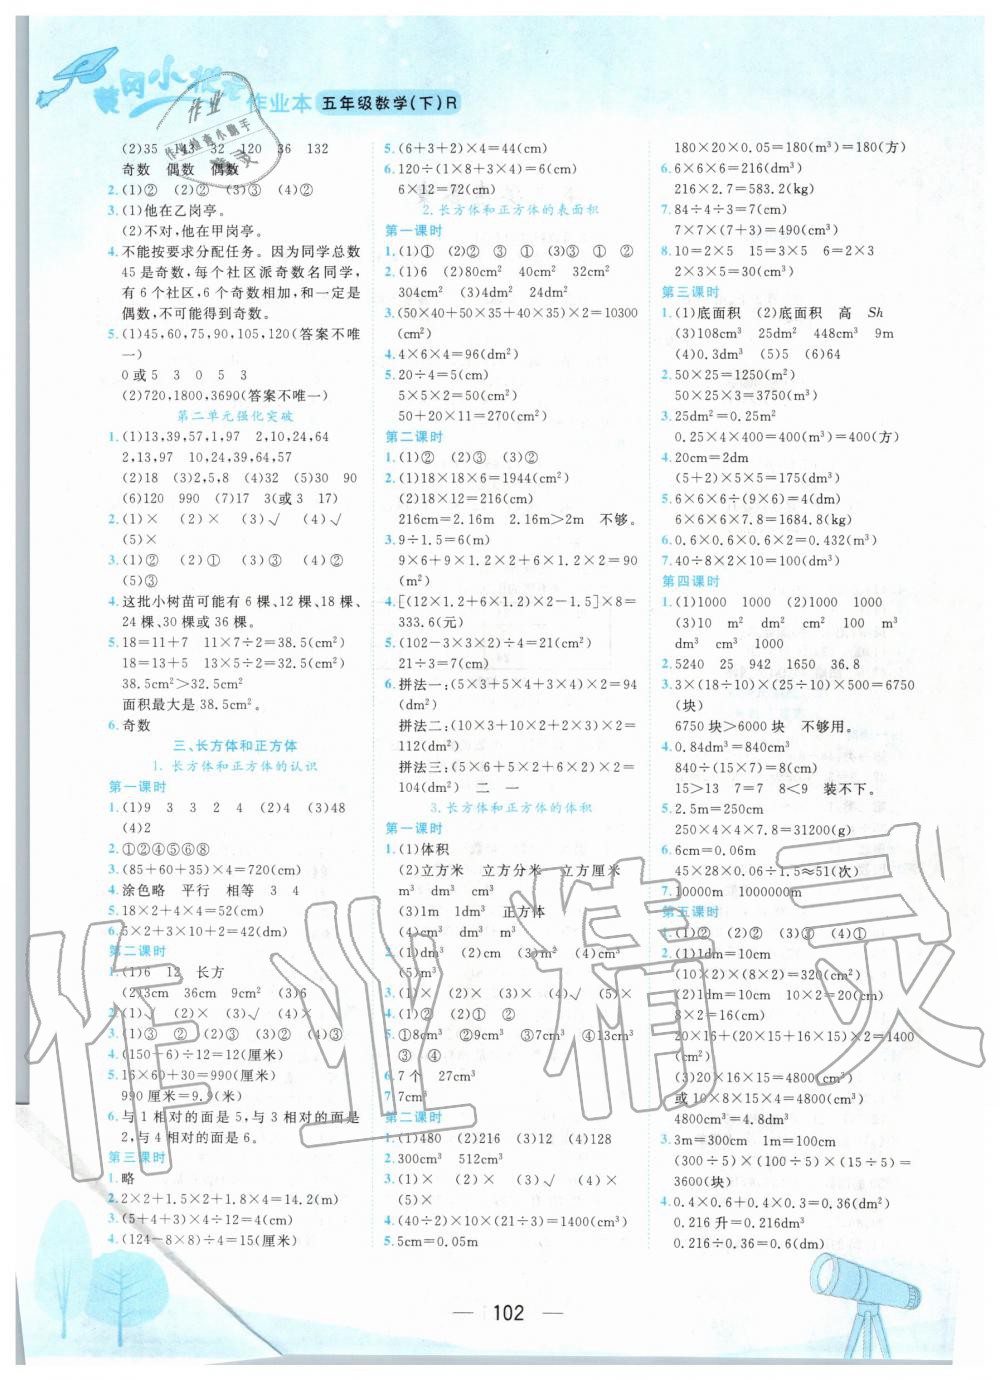 黄冈小状元
作业本 五年级数学(下)R
(2)35 143 32 120 36 132
奇数 偶数 偶数
2.(1)② (2)② (3)③ (4)②
3.(1)他在乙岗亭。
(2)不对,他在甲岗亭。
4.不能按要求分配任务。因为同学总数
45是奇数,每个社区派奇数名同学,
有6个社区,6个奇数相加,和一定是
偶数,不可能得到奇数。
5.(1)45,60,75,90,105,120(答案不唯
一)
0或5 3 0 5 3
(2)720,1800,3690(答案不唯一)
第二单元强化突破
1.(1)13,39,57,1,97 2,10,24,64
2,13,97 1,10,24,39,64,57
(2)18 (3)2,5,8 (4)32 (5)30 90
(6)120 990 (7)17 3(或3 17)
2.(1)× (2)× (3)√ (4)√
(5)×
3.(1)② (2)① (3)③ (4)②
(5)③
4.这批小树苗可能有6棵、12棵、18棵、
24棵、30棵或36棵。
5.18=11+7 11×7÷2=38.5(cm²)
18=13+5 13×5÷2=32.5(cm²)
38.5cm²>32.5cm²
面积最大是38.5cm²。
6.奇数
三、长方体和正方体
1.长方体和正方体的认识
第一课时
1.(1)9 3 3 2 4 (2)4 (3)48
(4)2
2.①②④⑤⑥⑧
3.(85+60+35)×4=720(cm)
4.涂色略 平行 相等 3 4
5.18×2+4×4=52(cm)
6.5×2+3×10+2=42(dm)
第二课时
1.(1)6 12 长方
(2)3cm 36cm 9cm² (3)6
2.(1)√ (2)× (3)√ (4)×
3.(1)③ ② (2)③ (3)③ (4)②
4.(150-6)÷12=12(厘米)
5.16×60+30=990(厘米)
990厘米=9.9(米)
6.与1相对的面是5,与3相对的面是
2,与4相对的面是6。
第三课时
1.略
2.2×2+1.5×2+1.8×4=14.2(m)
3.(5+4+3)×4=48(cm)
4.(124-8×8)÷4=15(厘米)
5.(6+3+2)×4=44(cm)
6.120÷(1×8+3×4)=6(cm)
6×12=72(cm)
2.长方体和正方体的表面积
第一课时
1.(1)① (2)② ③ ① ③ ②
2.(1)6 (2)80cm² 40cm² 32cm²
304cm² (3)4dm² 24dm²
3.(50×40+50×35+40×35)×2=10300
(cm²)
4.4×6×4=96(dm²)
5.20÷4=5(cm)
5×5×2=50(cm²)
50+20×11=270(cm²)
第二课时
1.(1)② (2)③ (3)②
2.(1)18×18×6=1944(cm²)
(2)18×12=216(cm)
216cm=2.16m 2.16m>2m 不够。
3.9÷1.5=6(m)
9×6+9×1.2×2+6×1.2×2=90
(m²)
4.[(12×1.2+6×1.2)×2-1.5]×8=
333.6(元)
5.(102-3×3×2)÷4=21(cm²)
21÷3=7(cm)
6.拼法一:(5×3+5×4+3×4)×2=94
(dm²)
拼法二:(10×3+10×2+2×3)×2=
112(dm²)
拼法三:(5×6+5×2+6×2)×2=
104(dm²) 二 一
3.长方体和正方体的体积
第一课时
1.(1)体积
(2)立方米 立方分米 立方厘米
m³ dm³ cm³
(3)1m 1dm³ 正方体
(4)cm³ dm³ m³
2.(1)dm³ (2)cm (3)m² (4)cm³
(5)m³
3.(1)× (2)× (3)× (4)√ (5)×
4.(1)② (2)① ②
5.①8cm³ ②9cm³ ③7cm³ ④13cm³
③ ④
6.7个 27cm³
7.7cm³
第二课时
1.(1)480 (2)216 (3)12 (4)128
2.300cm³ 512cm³
3.(1)× (2)× (3)√ (4)×
(5)×
4.(40÷2)×10×(21÷3)=1400(cm³)
5.5cm=0.05m
180×20×0.05=180(m³)=180(方)
6.6×6×6=216(dm³)
216×2.7=583.2(kg)
7.84÷4÷3=7(cm)
7×7×(7+3)=490(cm³)
8.10=2×5 15=3×5 6=2×3
2×3×5=30(cm³)
第三课时
1.(1)底面积 (2)底面积 高 Sh
(3)108cm³ 25dm² 448cm³ 9m
(4)0.3dm³ (5)5 (6)64
2.50×25=1250(m²)
50×25×3=3750(m³)
3.25dm²=0.25m²
0.25×4×400=400(m³)=400(方)
4.20cm=2dm
(5+2)×5×5=175(dm³)
5.6×6×6÷(9×6)=4(dm)
6×6×6×7.8=1684.8(kg)
6.0.6×0.6×0.6×2=0.432(m³)
7.40÷8×2×10=100(dm³)
第四课时
1.(1)1000 1000 (2)1000 1000
(3)10 m² dm² cm² 100 m³
dm³ cm³ 1000
2.5240 25 942 1650 36.8
3.3×(18÷10)×(25÷10)×500=6750
(块)
6750块>6000块 不够用。
4.0.84dm³=840cm³
840÷(15×7)=8(cm)
15>13 7=7 8<9 装不下。
5.2.5m=250cm
250×4×4×7.8=31200(g)
6.6cm=0.06m
45×28×0.06÷1.5≈51(次)
7.10000m 1000000m
第五课时
1.(1)② (2)② (3)③ (4)①
2.(1)1dm=10cm
(10×2)×(8×2)=320(cm²)
(2)1dm=10cm 10×2=20(cm)
8×2=16(cm)
20×16+(20×15+16×15)×2=1400
(cm²)
(3)20×16×15=4800(cm³)
或10×8×15×4=4800(cm³)
4800cm³=4.8dm³
3.3m=300cm 1m=100cm
(300÷5)×(15÷5)×(100÷5)=
3600(块)
4.0.4×0.6+0.4×0.3=0.36(dm²)
0.216升=0.216dm³
0.216÷0.36=0.6(dm)
102
作业精灵
作业
作业检查小助手
精灵